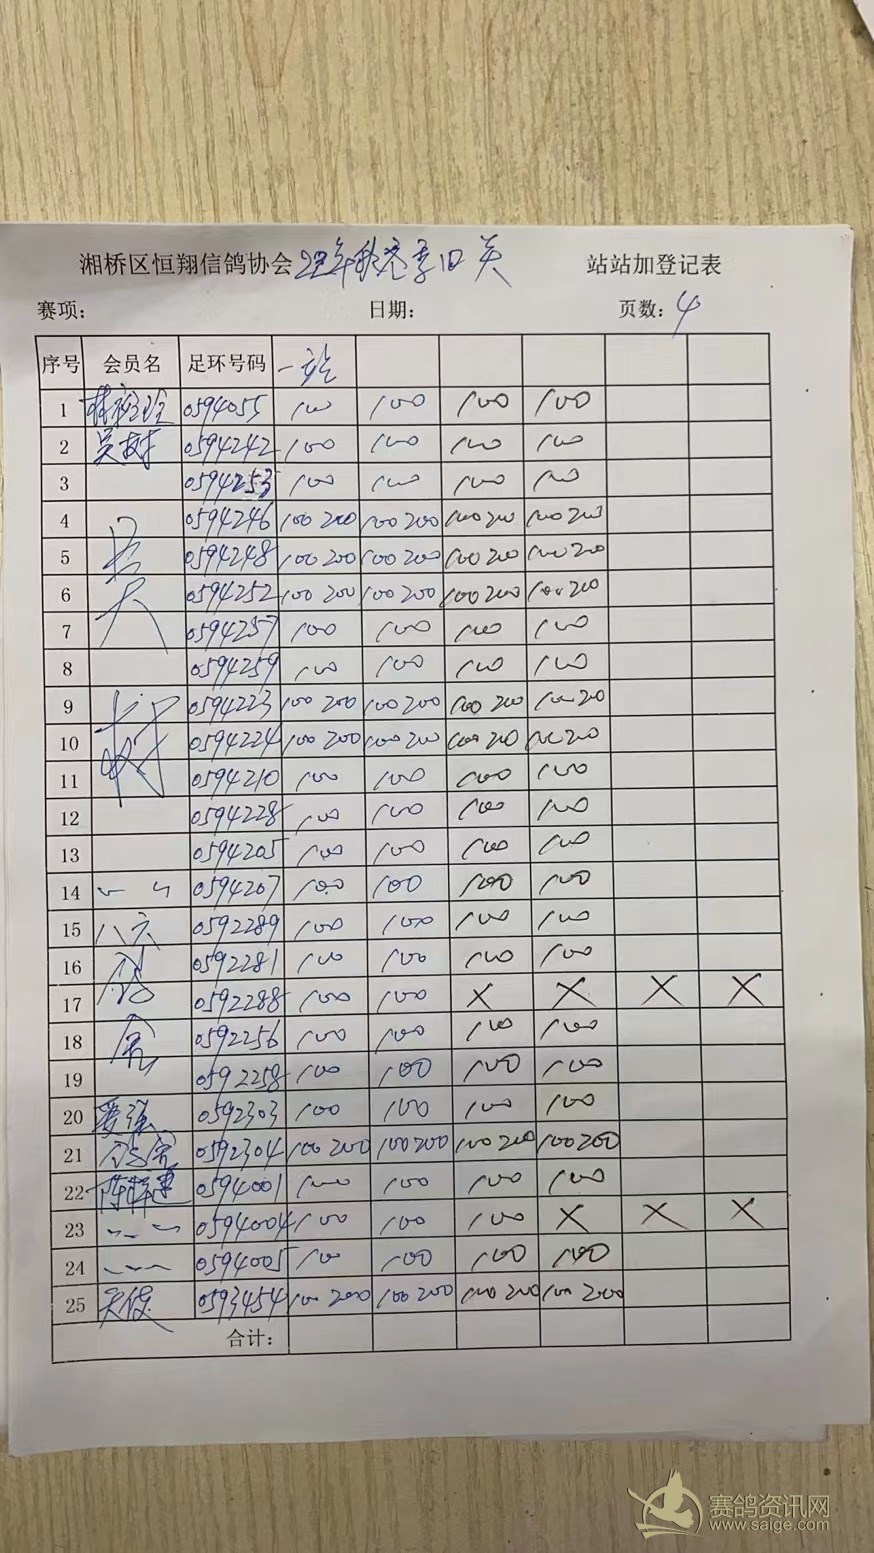 湘桥区恒翔信鸽协会 22年秋 季四关 站站加登记表
赛项: 日期: 页数: 4
序号 会员名 足环号码 一站
1 0594055 100 100 100 100
2 吴树 0594242 100 100 100 100
3 0594253 100 100 100 100
4 吴 0594246 100 200 100 200 100 200 100 200
5 0594248 100 200 100 200 100 200 100 200
6 0594252 100 200 100 200 100 200 100 200
7 0594257 100 100 100 100
8 0594259 100 100 100 100
9 树 0594223 100 200 100 200 100 200 100 200
10 0594224 100 200 100 200 100 200 100 200
11 0594210 100 100 100 100
12 0594228 100 100 100 100
13 0594205 100 100 100 100
14 0594207 100 100 100 100
15 八六 0592289 100 100 100 100
16 0592281 100 100 100 100
17 鸽 0592288 100 100 X X X X
18 舍 0592256 100 100 100 100
19 0592258 100 100 100 100
20 0592303 100 100 100 100
21 0592304 100 200 100 200 100 200 100 200
22 0594001 100 100 100 100
23 0594004 100 100 100 X X X
24 0594005 100 100 100 100
25 0593454 100 200 100 200 100 200 100 200
合计:
赛鸽资讯网
www.saige.com